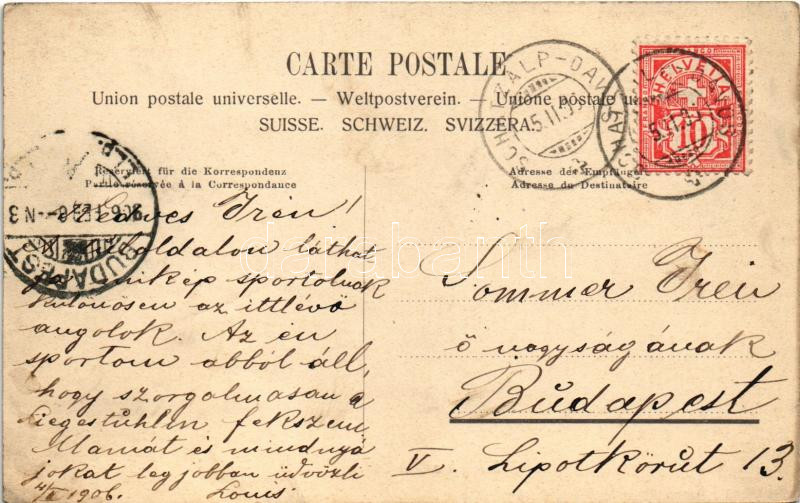 CARTE POSTALE
Union postale universelle. — Weltpostverein. — Unione postale
SUISSE. SCHWEIZ. SVIZZERA.
Reserviert für die Korrespondenz
Partie réservée à la Correspondance
Adresse des Empfängers
Adresse du Destinataire
HELVETIA
10
BUDAPEST
Kedves Irén!
oldalon láthat
ja mikép sportolnak
különösen az ittlévő
angolok. Az én
sportom abból áll,
hogy szorgalmasan a
Liegestühlen fekszem
Mamát és mindnyá
jokat legjobban üdvözli
1906. Louis
Sommer Irén
ő nagyságának
Budapest
V. Lipotkörút 13.
darabanth